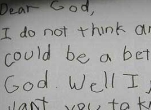 Dear God,
I do not think an
could be a bet
God. Well I,
want you to k